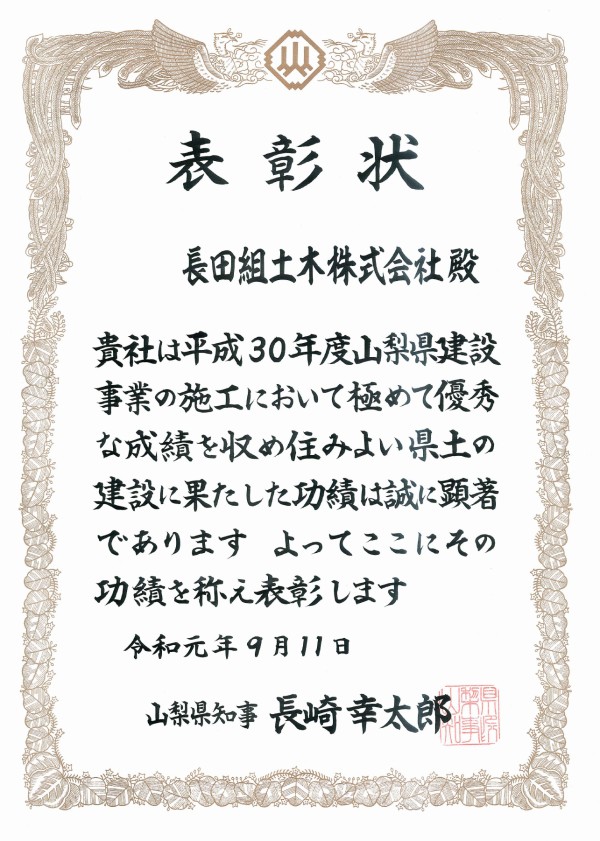 表彰状
長田組土木株式会社殿
貴社は平成30年度山梨県建設
事業の施工において極めて優秀
な成績を収め住みよい県土の
建設に果たした功績は誠に顕著
であります よってここにその
功績を称え表彰します
令和元年9月11日
山梨県知事 長崎幸太郎